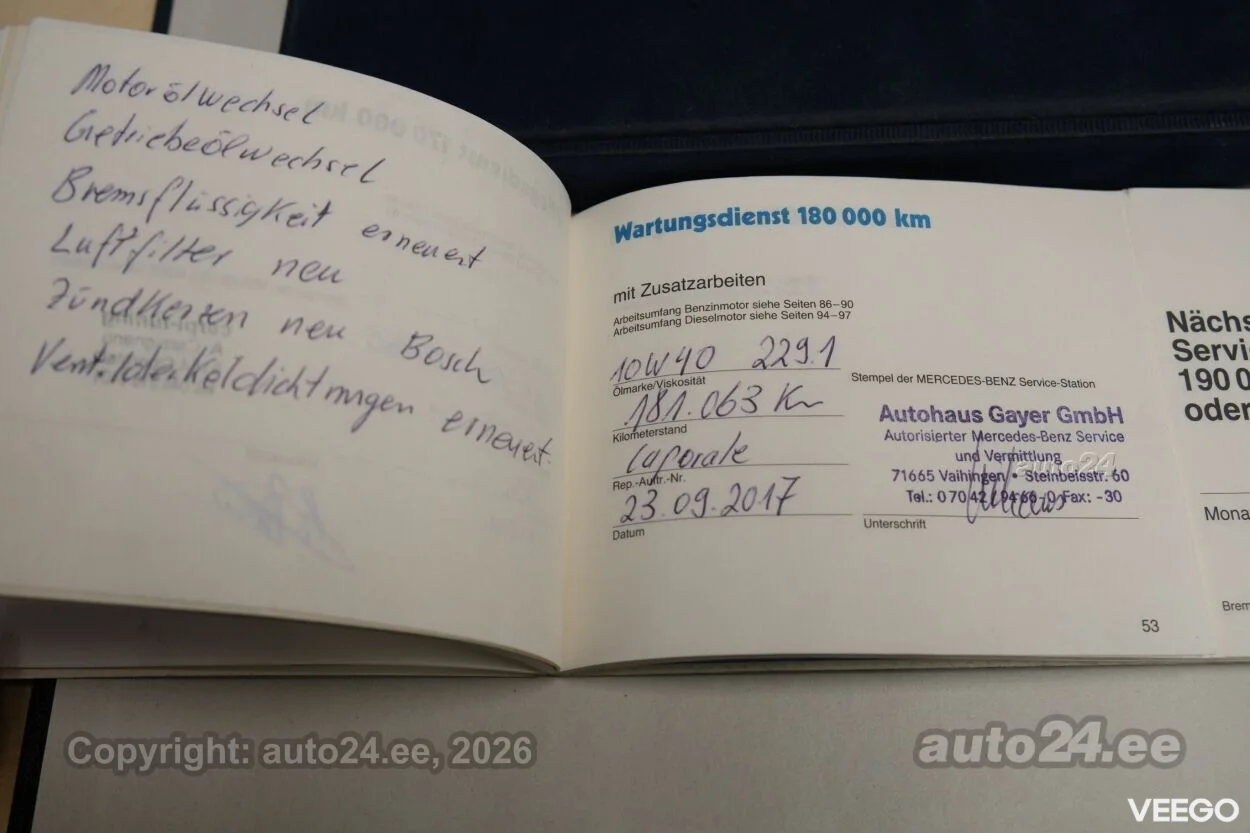 Motorölwechsel
Getriebeölwechsel
Bremsflüssigkeit erneuert
Luftfilter neu
Zündkerzen neu Bosch
Ventildeckeldichtungen erneuert.
Wartungsdienst 180 000 km
mit Zusatzarbeiten
Arbeitsumfang Benzinmotor siehe Seiten 86–90
Arbeitsumfang Dieselmotor siehe Seiten 94–97
10W40 229.1
Ölmarke/Viskosität
181.063 Km
Kilometerstand
Rep.-Auftr.-Nr.
23.09.2017
Datum
Stempel der MERCEDES-BENZ Service-Station
Autohaus Gayer GmbH
Autorisierter Mercedes-Benz Service
und Vermittlung
71665 Vaihingen • Steinbeisstr. 60
Tel.: 0 70 42 / 94 66-0 Fax: -30
Unterschrift
53
Nächs
Servi
190 0
oder
Mona
Brem
auto24
Copyright: auto24.ee, 2026
auto24.ee
VEEGO